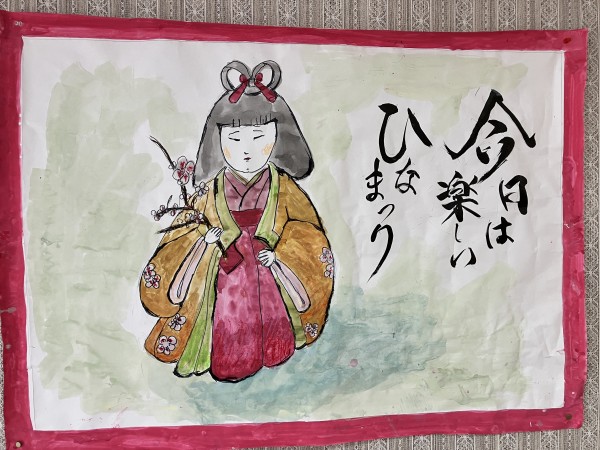 今日は楽しい
ひなまつり